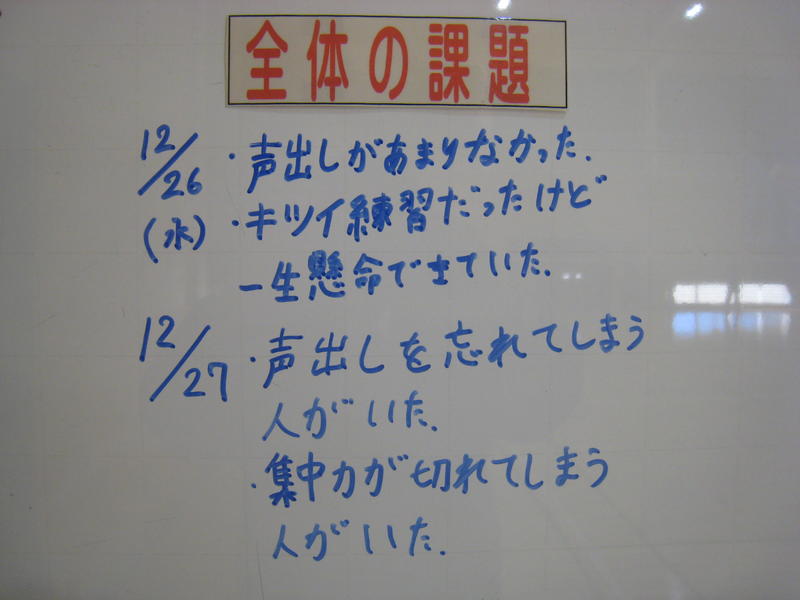 全体の課題
12/26 ・声出しがあまりなかった.
(水) ・キツイ練習だったけど
一生懸命できていた.
12/27 ・声出しを忘れてしまう
人がいた.
・集中力が切れてしまう
人がいた.